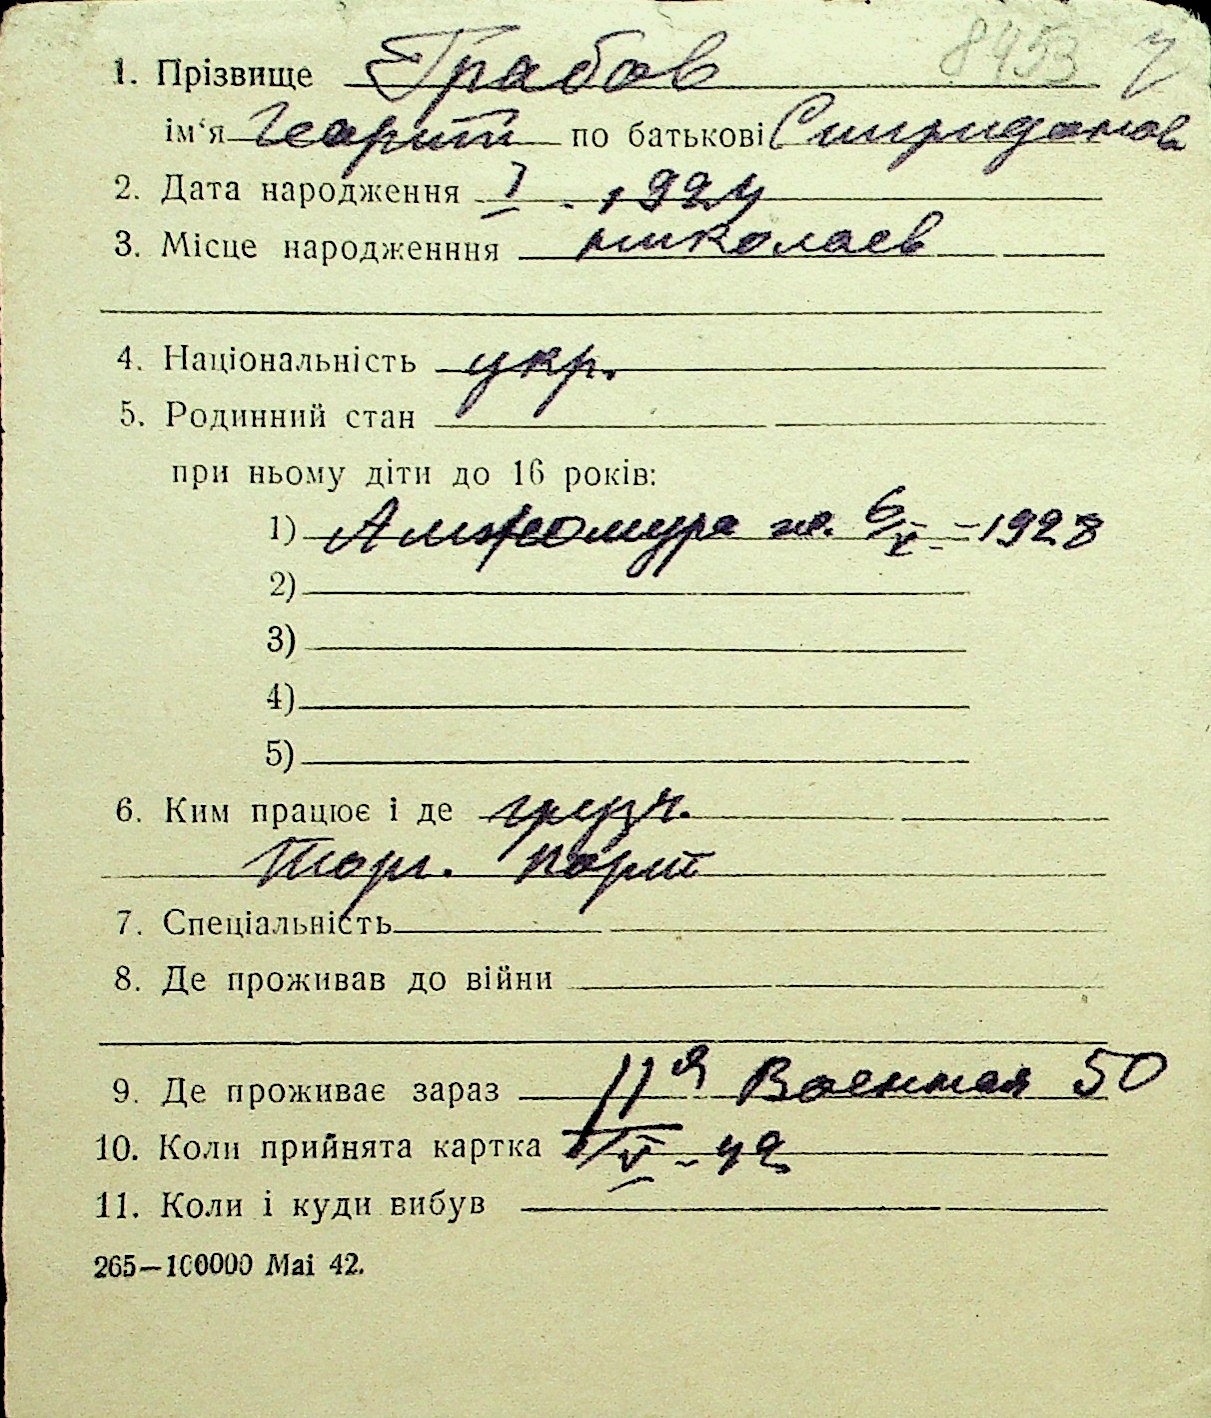 8453
1. Прізвище Грабов
ім'я Георгий по батькові Спиридонов
2. Дата народження I . 1924
3. Місце народженння николаев
4. Національність укр.
5. Родинний стан
при ньому діти до 16 років:
1) 6/V - 1928
2)
3)
4)
5)
6. Ким працює і де грузч.
Торг. порт
7. Спеціальність
8. Де проживав до війни
9. Де проживає зараз 11я Военная 50
10. Коли прийнята картка /VI - 42
11. Коли і куди вибув
265—100000 Mai 42.